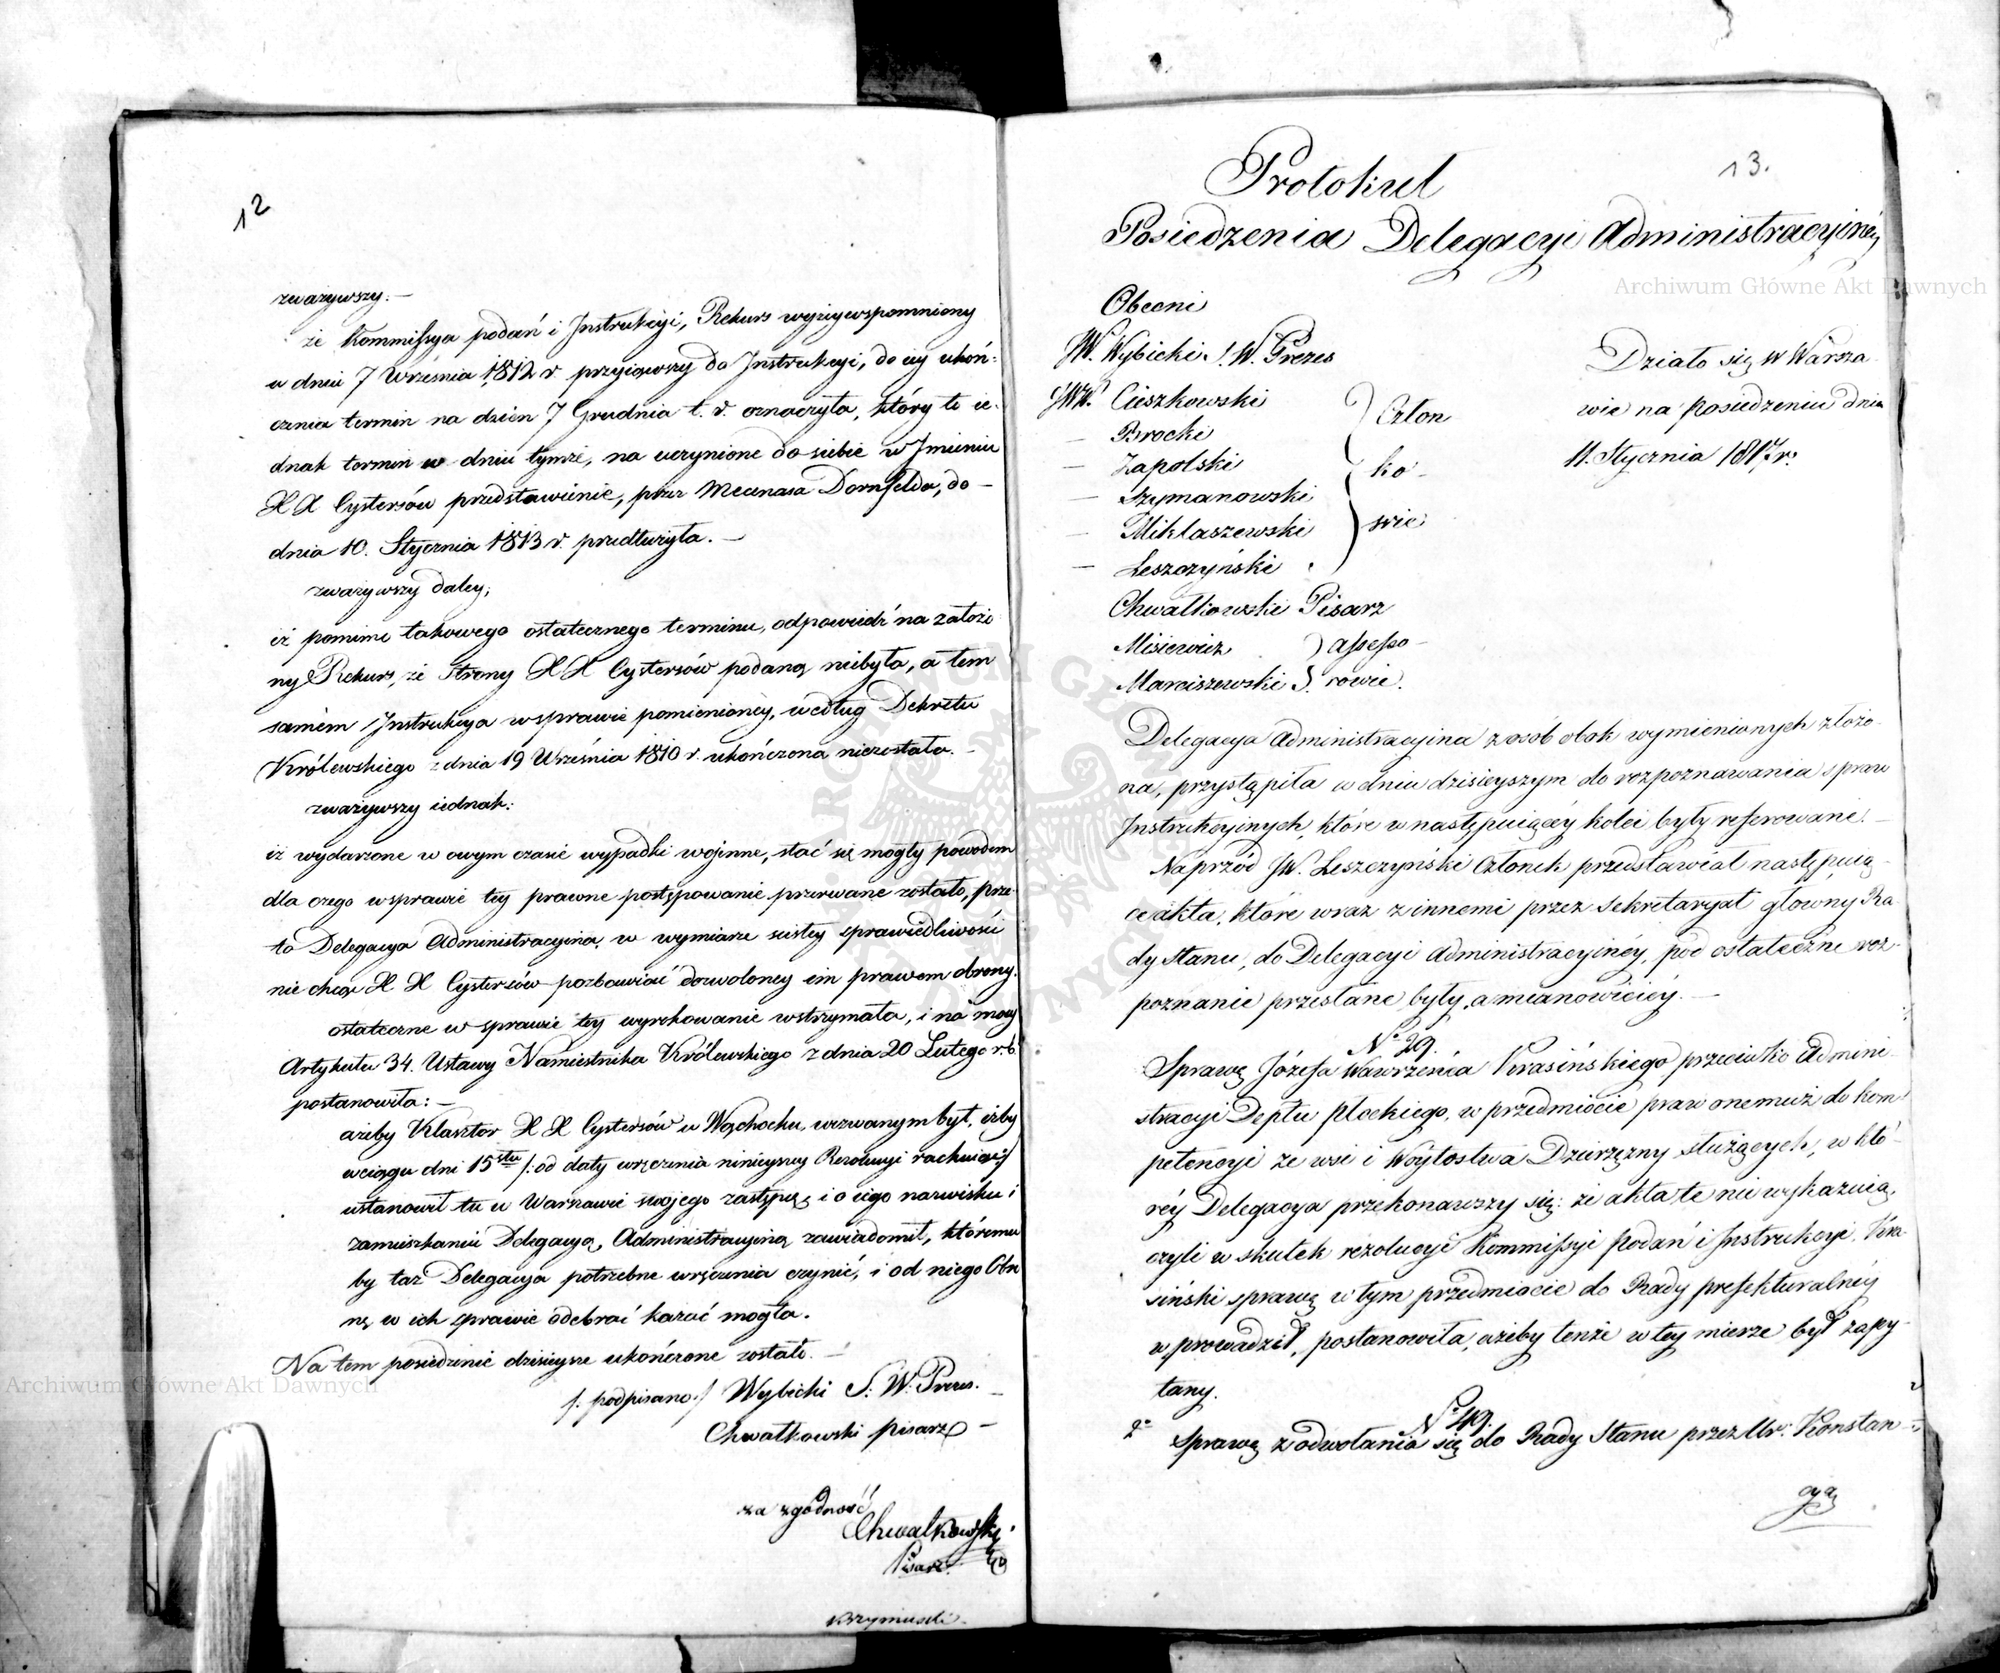 12
zważywszy. —
że Kommissya podań i Instrukcyi, Rekurs wyżeywspomniony
w dniu 7 Września 1812 r. przyiąwszy do Instrukcyi, do iey ukoń-
czenia termin na dzień 7 Grudnia t. r. oznaczyła, który to ie-
dnak termin w dniu tymże, na uczynione do siebie w Imieniu
XX Cystersów przedstawienie, przez Mecenasa Dornfelda, do —
dnia 10. Stycznia 1813 r. przedłużyła. —
zważywszy daley;
iż pomimo takowego ostatecznego terminu, odpowiedź na założo
ny Rekurs, ze Strony XX Cystersów podaną niebyła, a tem
samém Instrukcya w sprawie pomienionéy, według Dekretu
Królewskiego z dnia 19 Września 1810 r. ukończona niezostała. —
zważywszy iednak:
iż wydarzone w owym czasie wypadki wojenne, stać się mogły powodem
dla czego w sprawie tey prawne postępowanie przerwane zostało, prze-
to Delegacya Administracyina, w wymiarze ścisłey sprawiedliwości
nie chcąc X X Cystersów pozbawiać dozwoloney im prawem obrony.
ostateczne w sprawie tey wyrokowanie wstrzymała, i na mocy
Artykułu 34. Ustawy Namiestnika Królewskiego z dnia 20 Lutego r. b.
postanowiła: —
ażeby Klasztor XX Cystersów w Wąchocku, wezwanym był, iżby
w ciągu dni 15stu /: od daty wręczenia ninieyszey Rezolucyi rachuiąc :/
ustanowił tu w Warszawie swojego zastępcę i o iego nazwisku i
zamieszkaniu Delegacyą Administracyiną zawiadomił, któremu
by taż Delegacya potrzebne wręczenia czynić, i od niego Obro
nę w ich sprawie odebrać kazać mogła.
Na tem posiedzenie dzisieysze ukończone zostało. —
/: podpisano :/ Wybicki S: W: Prezes. —
Chwałkowski pisarz —
za zgodność
Chwałkowski
Pisarz
Krzymuski
13.
Protokuł
Posiedzenia Delegacyi Administracyinéy
Obecni
JW. Wybicki S. W. Prezes
Działo się w Warsza
JWW. Cieszkowski
Człon
wie na posiedzeniu dnia
— Brocki
— Zapolski
ko —
11. Stycznia 1817 r.
— Szymanowski
— Miklaszewski
wie
— Leszczyński
Chwałkowski Pisarz
Misiewicz
Assesso —
Marciszewski
rowie.
Delegacya Administracyina z osób obok wymienionych złożo
na, przystąpiła w dniu dzisieyszym do rozpoznawania spraw
Instrukcyinych, które w następuiącéy kolei były referowane. —
Naprzód JW. Leszczyński Członek przedstawiał następuią
ce akta, które wraz z innemi przez Sekretaryat główny Ra
dy Stanu, do Delegacyi Administracyinéy, pod ostateczne roz-
poznanie przesłane były, a mianowiciéy. —
No 29.
Sprawę Józefa Wawrzeńca Krasińskiego przeciwko Admini
stracyi Deptu Płockiego, w przedmiocie praw onemuż do kom
petencyi ze wsi i Woytostwa Dzierzęzny służących, w któ-
réy Delegacya przekonawszy się: że akta te nie wykazuią,
czyli w skutek rezolucyi Kommissyi podań i Instrukcyi, Kra
siński sprawę w tym przedmiocie do Rady prefekturalnéy
wprowadził, postanowiła, ażeby tenże w tey mierze był zapy-
tany.
No 49.
2o Sprawę z odwołania się do Rady Stanu przez Ur: Konstan-
cyą
Archiwum Główne Akt Dawnych
Archiwum Główne Akt Dawnych